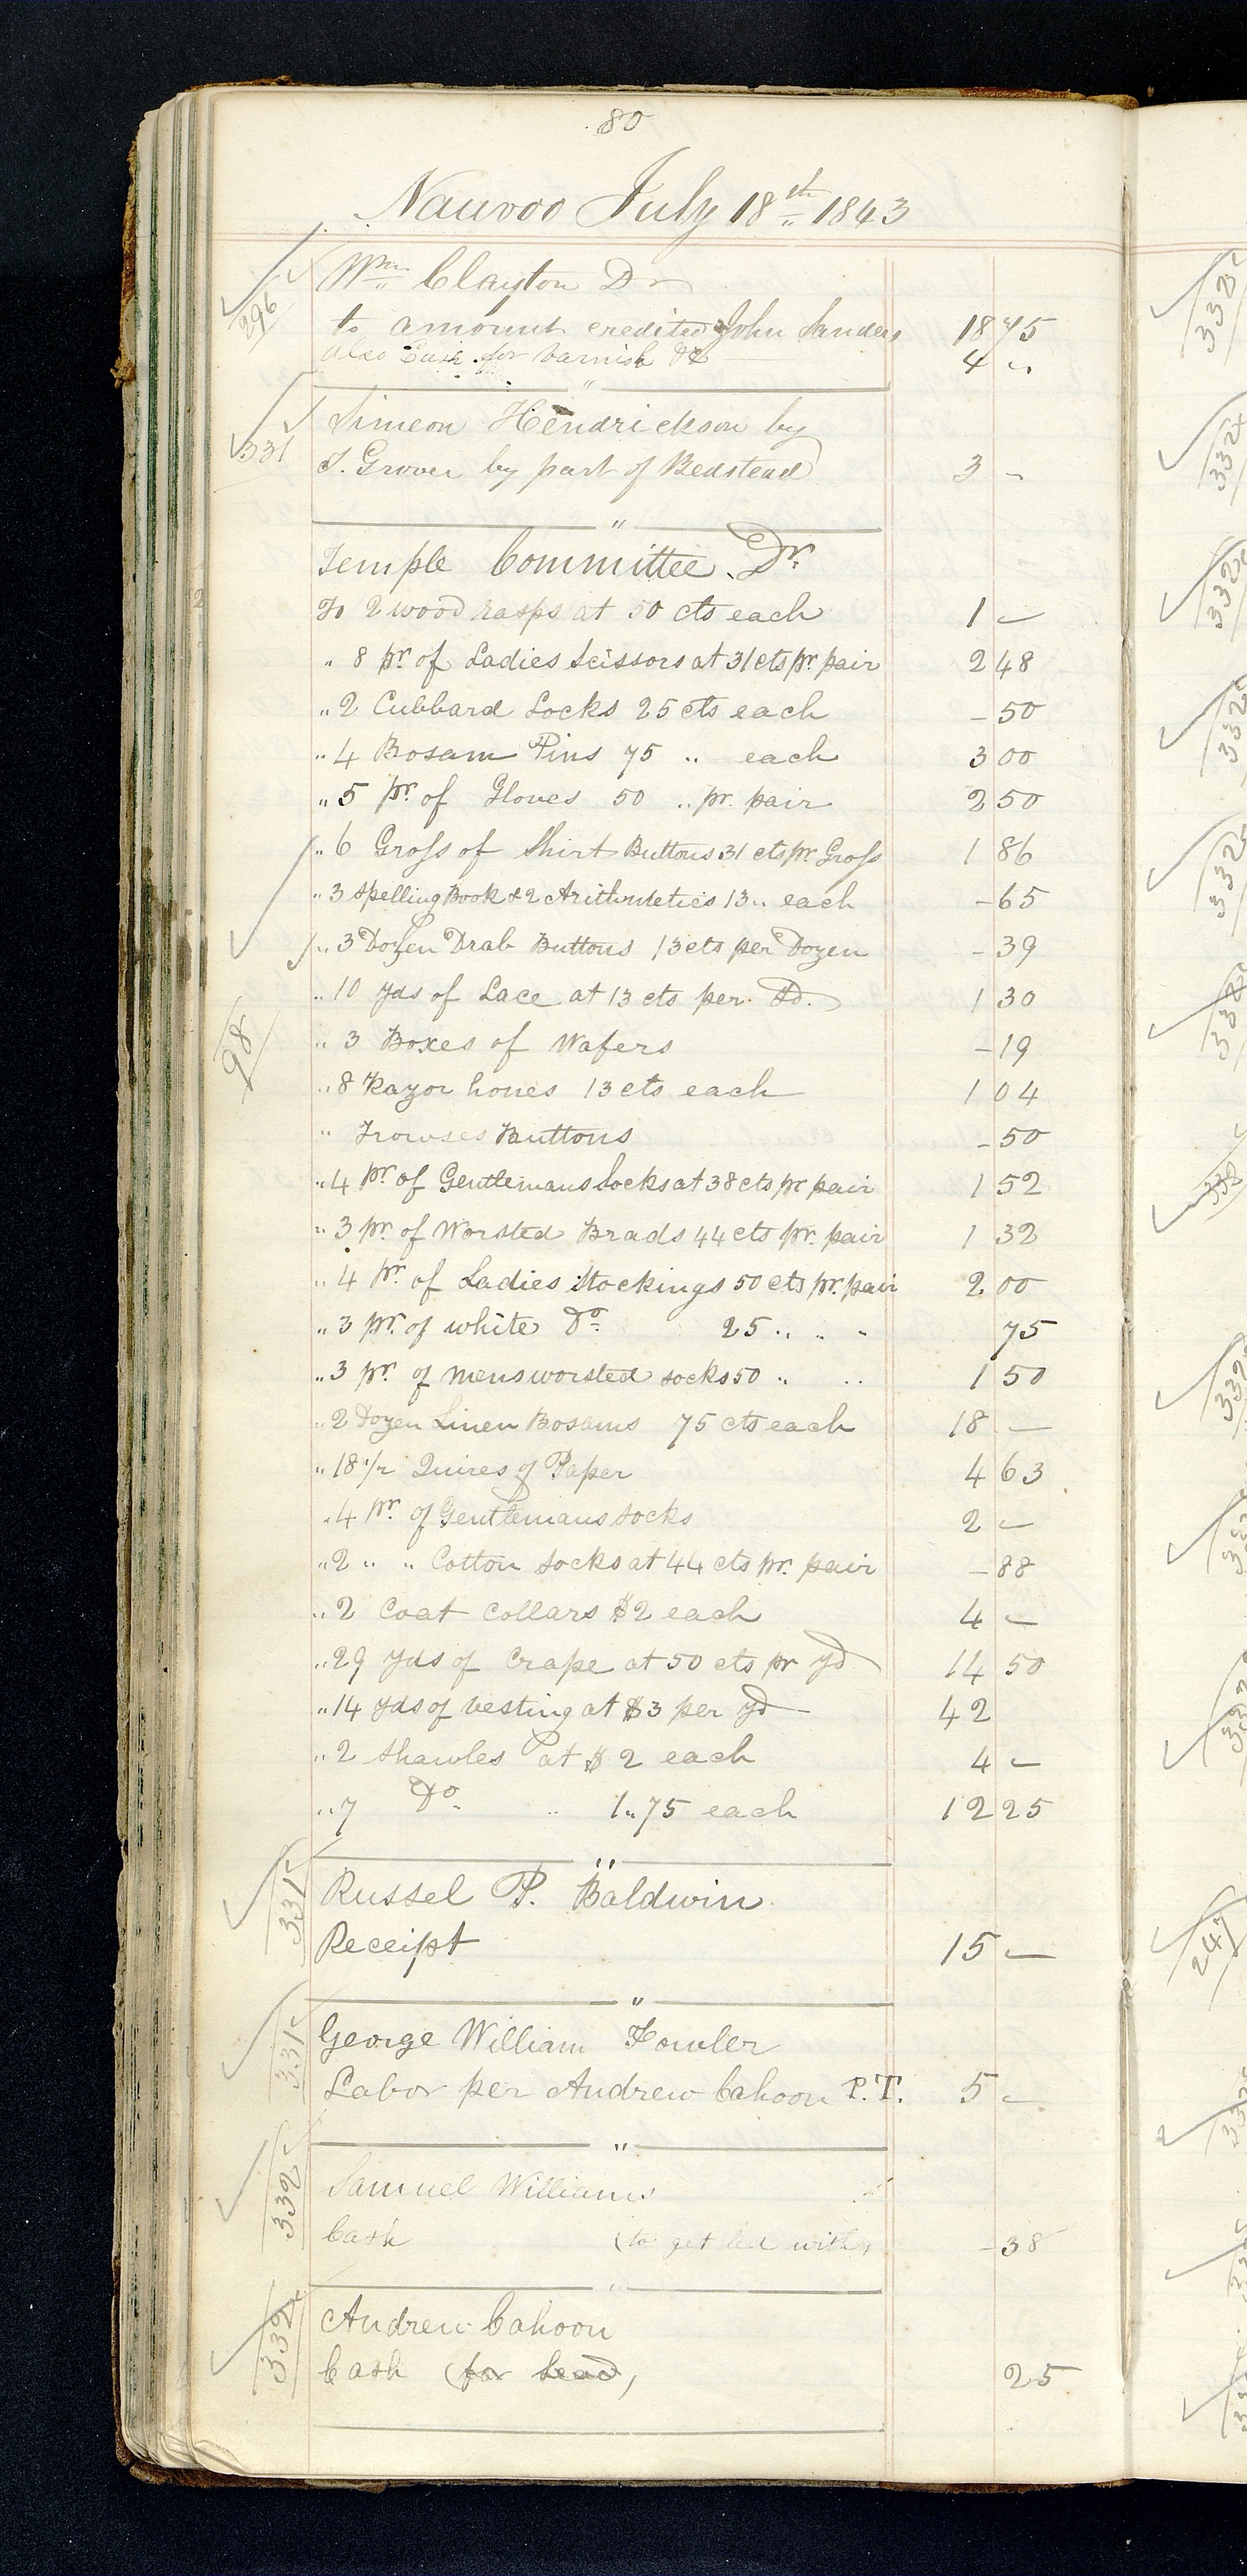 80
Nauvoo July 18th 1843
296 Wm Clayton Dr
to amount credited John Sanders 18 75
also Cash for varnish &c 4 "
331 Simeon Hendrickson by
T. Grover by part of Bedstead 3 -
Temple Committee Dr.
To 2 wood rasps at 50 cts each 1 -
" 8 pr. of Ladies Scissors at 31 cts pr. pair 2 48
" 2 Cubbard Locks 25 cts each - 50
" 4 Bosam Pins 75 " each 3 00
" 5 pr. of Gloves 50 " pr. pair 2 50
" 6 Gross of Shirt Buttons 31 cts pr. Gross 1 86
" 3 Spelling Book & 2 Arithmetics 13 " each - 65
" 3 Dozen Drab Buttons 13 cts per Dozen - 39
" 10 yds of Lace at 13 cts per Yd. 1 30
98 " 3 Boxes of Wafers - 19
" 8 Razor hones 13 cts each 1 04
" Trowses Buttons - 50
" 4 pr. of Gentlemans Socks at 38 cts pr pair 1 52
" 3 pr. of Worsted Brads 44 cts pr. pair 1 32
" 4 pr. of Ladies Stockings 50 cts pr. pair 2 00
" 3 pr. of white Do. 25 " " " 75
" 3 pr. of mens worsted socks 50 " " 1 50
" 2 Dozen Linen Bosams 75 cts each 18 -
" 18 1/2 Quires of Paper 4 63
" 4 pr. of Gentlemans socks 2 -
" 2 " " Cotton Socks at 44 cts pr. pair - 88
" 2 Coat Collars $2 each 4 -
" 29 yds of Crape at 50 cts pr yd 14 50
" 14 yds of vesting at $3 per yd 42
" 2 Shawles at $2 each 4 -
" 7 Do. " 1"75 each 12 25
331 Russel P. Baldwin
Receipt 15 -
331 George William Fowler
Labor per Andrew Cahoon P.T. 5 -
332 Samuel Williams
Cash (to get led with) - 38
332 Andrew Cahoon
Cash (for lead) 25
332
332
332
332
332
332
332
332
247